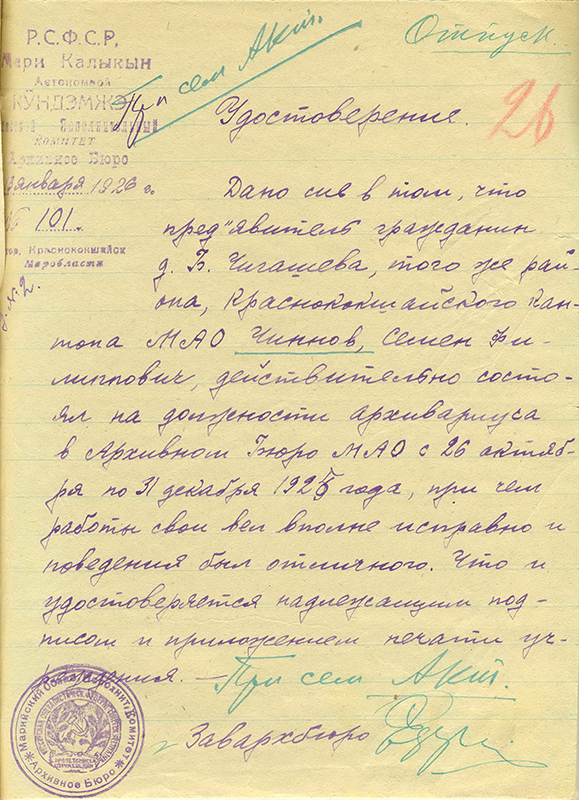 Р.С.Ф.С.Р.
Мари Калыкын
Автономной
КӰНДЭМЖЭ
КОМИТЕТ
Архивное Бюро
января 1926 г.
№ 101.
гор. Краснококшайск
Маробласти
При сем Акт.
Отпуск.
26
Удостоверение.
Дано сие в том, что
пред"явитель гражданин
д. Б. Чигашева, того же рай-
она, Краснококшайского кан-
тона МАО Чиннов, Семен Фи-
липпович, действительно состо-
ял на должности архивариуса
в Архивном Бюро МАО с 26 октяб-
ря по 31 декабря 1925 года, при чем
работы свои вел вполне исправно и
поведения был отличного. Что и
удостоверяется надлежащим под-
писом и приложением печати уч-
реждения. —
При сем Акт.
Завархбюро
Марийский Обл. Исполнит. Комитет
Архивное Бюро